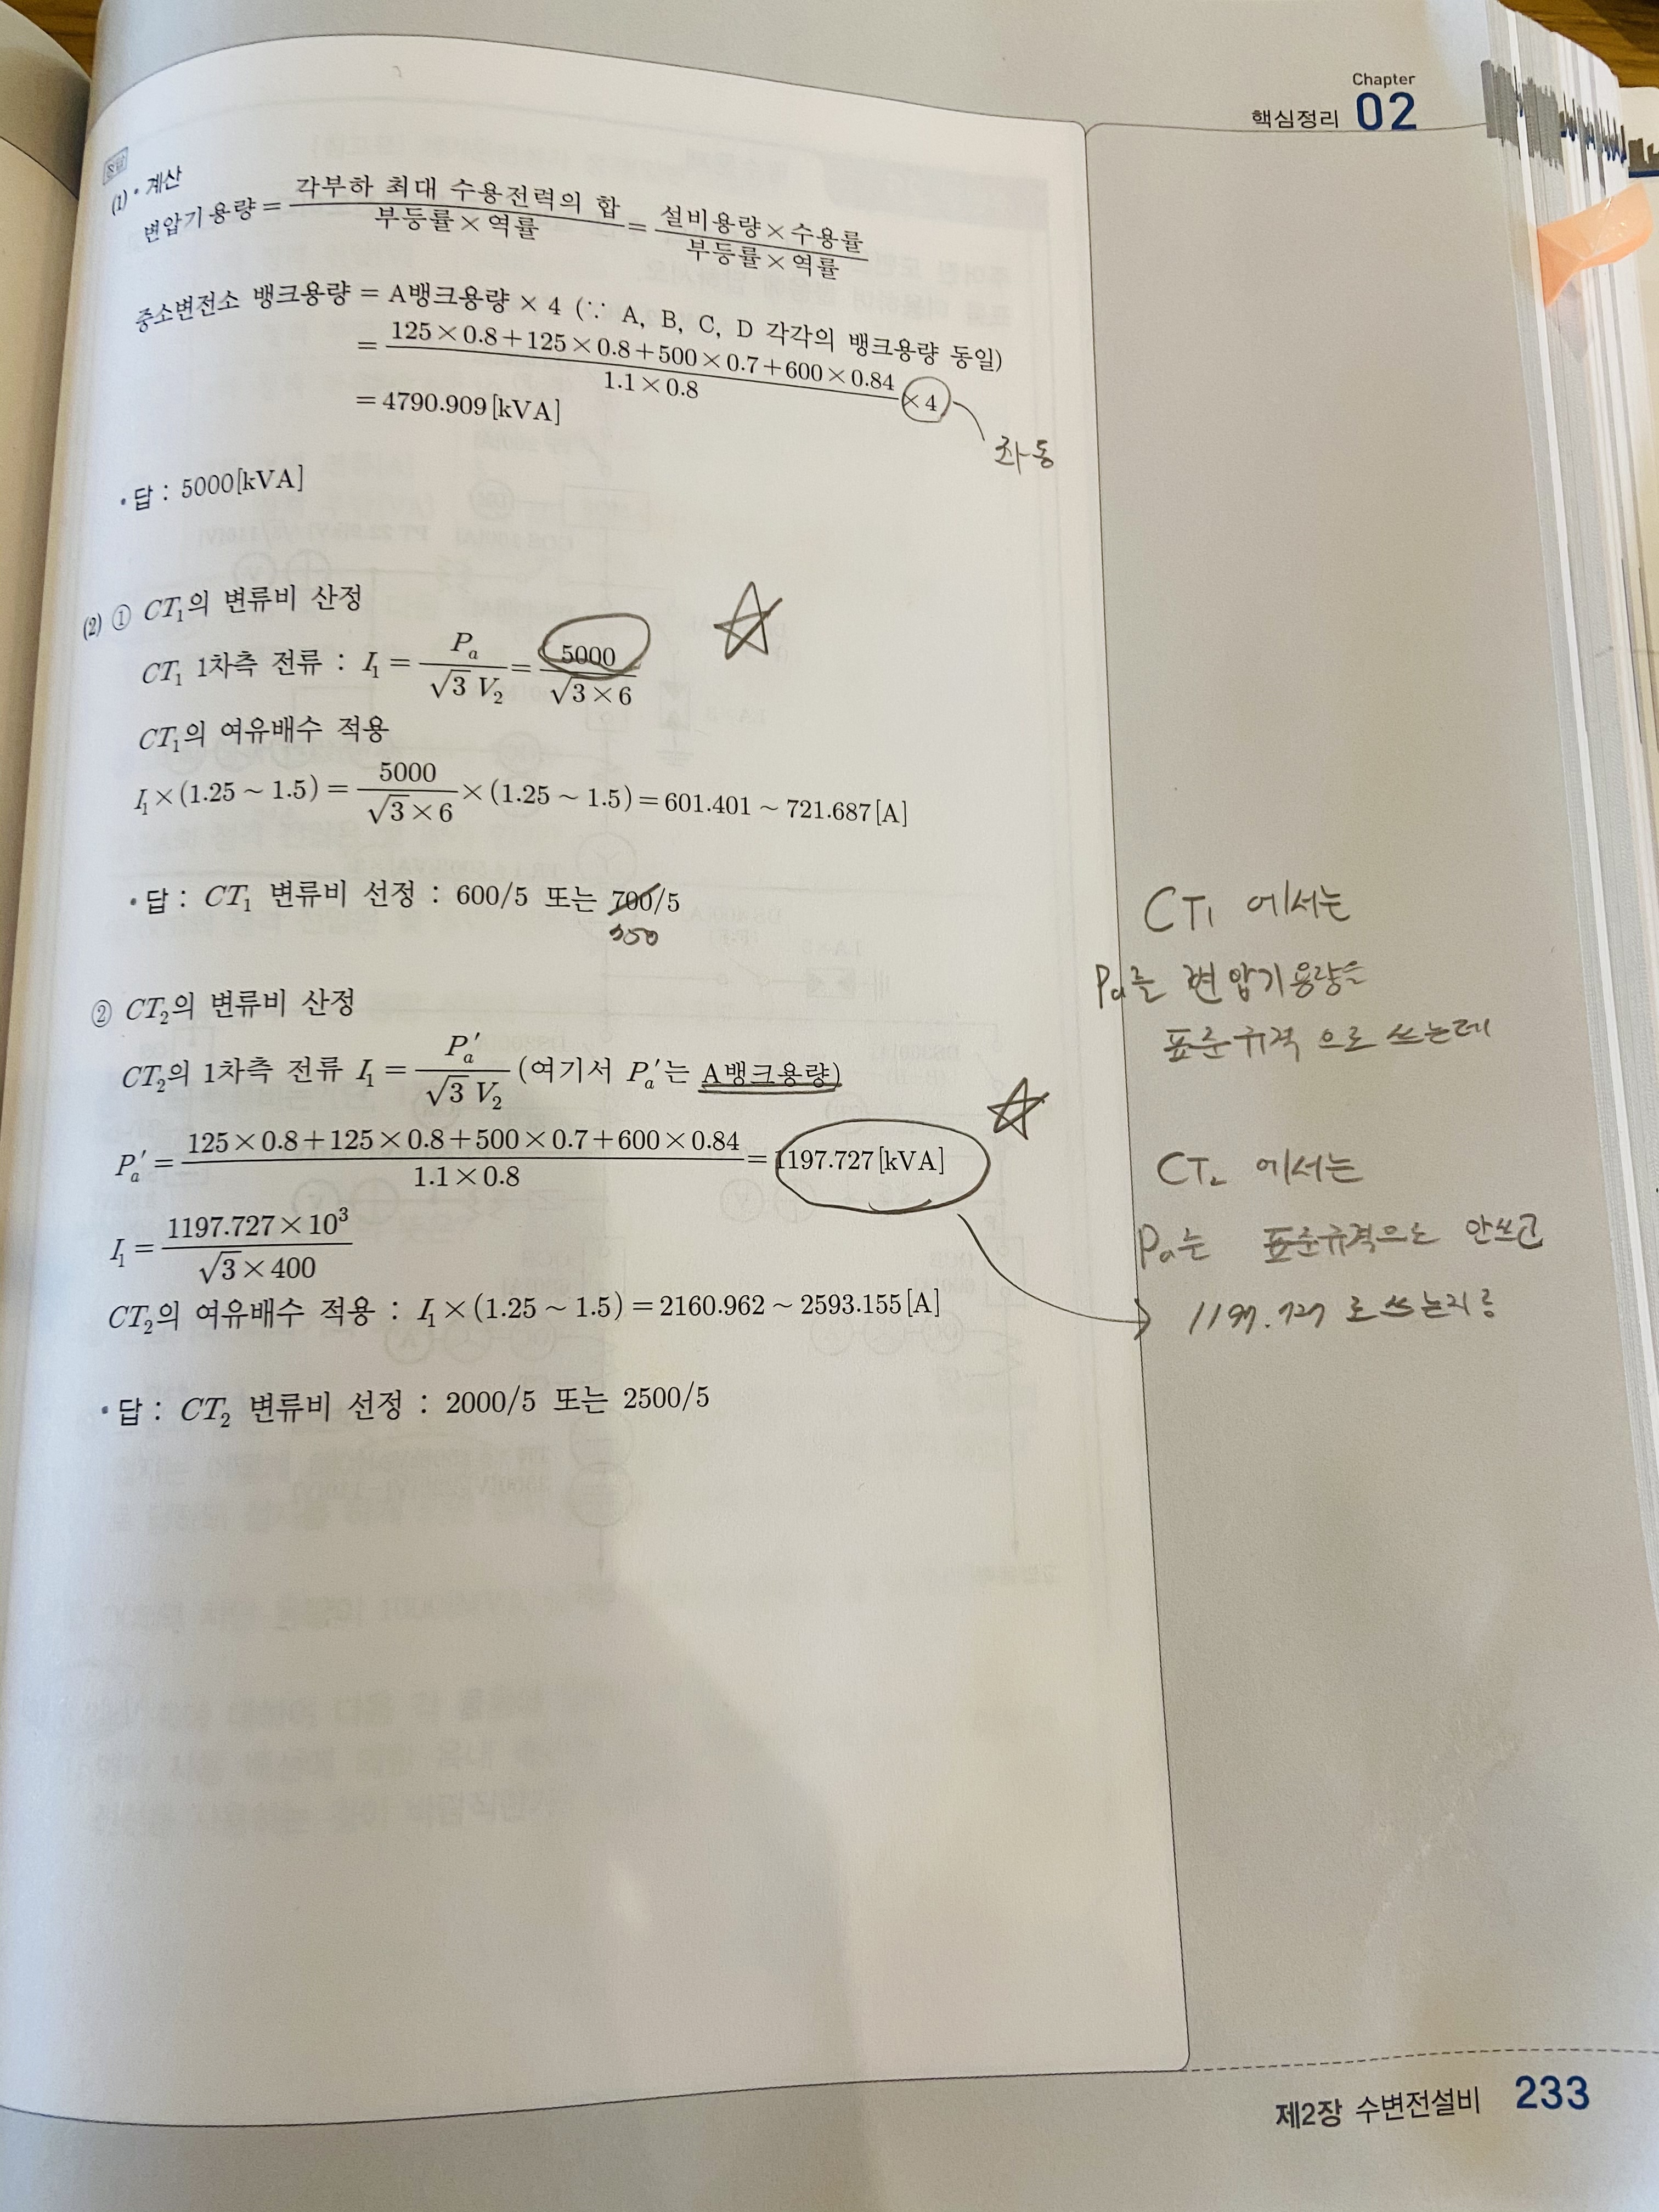 Chapter
핵심정리 02
정답
(1) • 계산
변압기용량 = 각부하 최대 수용전력의 합 / 부등률×역률 = 설비용량×수용률 / 부등률×역률
중소변전소 뱅크용량 = A뱅크용량 × 4 (∵ A, B, C, D 각각의 뱅크용량 동일)
= 125×0.8+125×0.8+500×0.7+600×0.84 / 1.1×0.8 ×4
= 4790.909[kVA]
좌동
• 답 : 5000[kVA]
(2) ① CT₁의 변류비 산정
CT₁ 1차측 전류 : I₁ = Pₐ / √3 V₂ = 5000 / √3×6
CT₁의 여유배수 적용
I₁×(1.25 ~ 1.5) = 5000 / √3×6 ×(1.25 ~ 1.5) = 601.401 ~ 721.687[A]
• 답 : CT₁ 변류비 선정 : 600/5 또는 700/5
② CT₂의 변류비 산정
CT₂의 1차측 전류 I₁ = Pₐ′ / √3 V₂ (여기서 Pₐ′는 A뱅크용량)
Pₐ′ = 125×0.8+125×0.8+500×0.7+600×0.84 / 1.1×0.8 = 1197.727[kVA]
I₁ = 1197.727×10³ / √3×400
CT₂의 여유배수 적용 : I₁×(1.25 ~ 1.5) = 2160.962 ~ 2593.155[A]
• 답 : CT₂ 변류비 선정 : 2000/5 또는 2500/5
CT₁ 에서는
Pa를 변압기용량을
표준규격 으로 쓰는데
CT₂ 에서는
Pa는 표준규격으로 안쓰고
1197.727 로 쓰는지
제2장 수변전설비 233